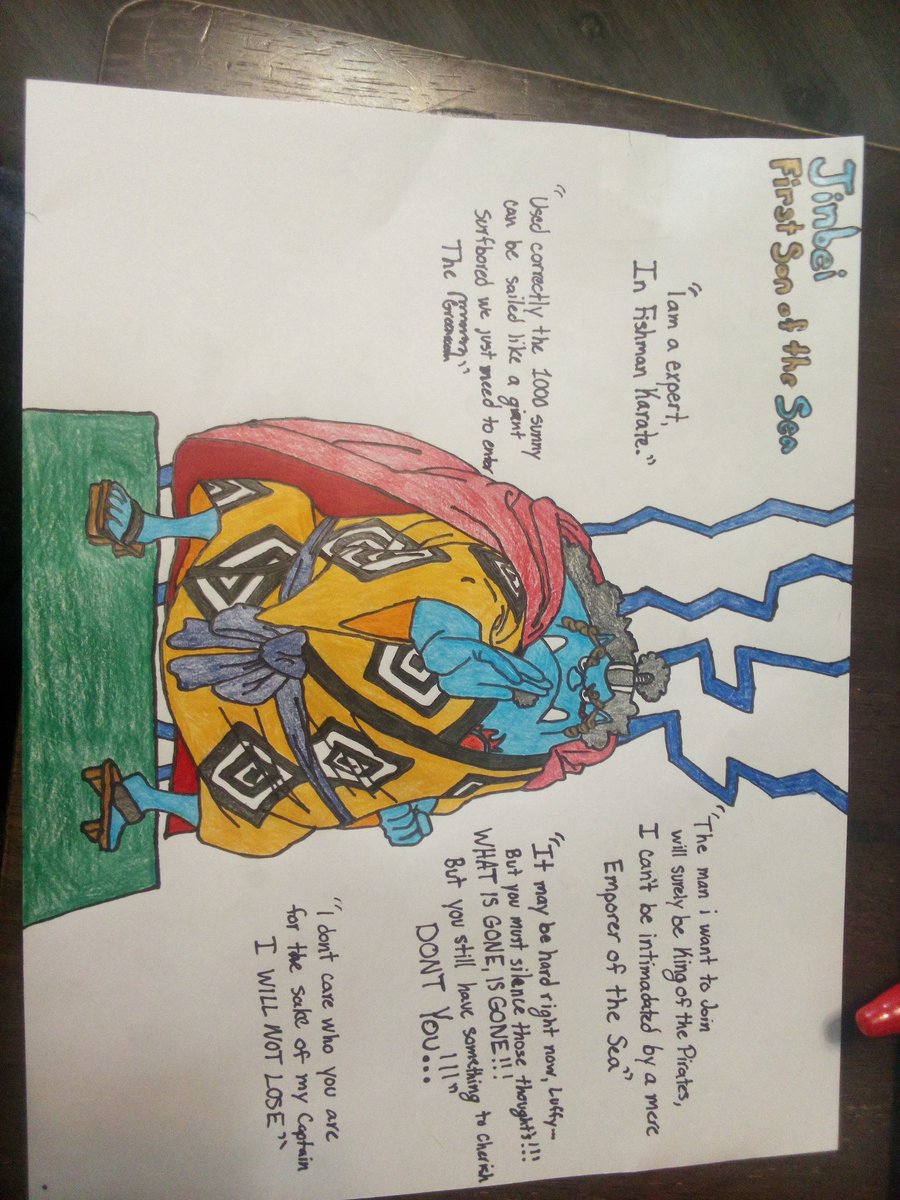 Jinbei
First Son of the Sea
"I am a expert,
In Fishman Karate."
"Used correctly the 1000 sunny
can be sailed like a giant
surfbored we just need to enter
The
"The man i want to Join
will surely be King of the Pirates,
I can't be intimadated by a mere
Emporer of the Sea"
"It may be hard right now, Luffy...
But you must silence those thought's!!!
WHAT IS GONE, IS GONE!!!
But you still have something to cherish
DONT YOU...!!!"
"I dont care who you are
for the sake of my Captain
I WILL NOT LOSE"